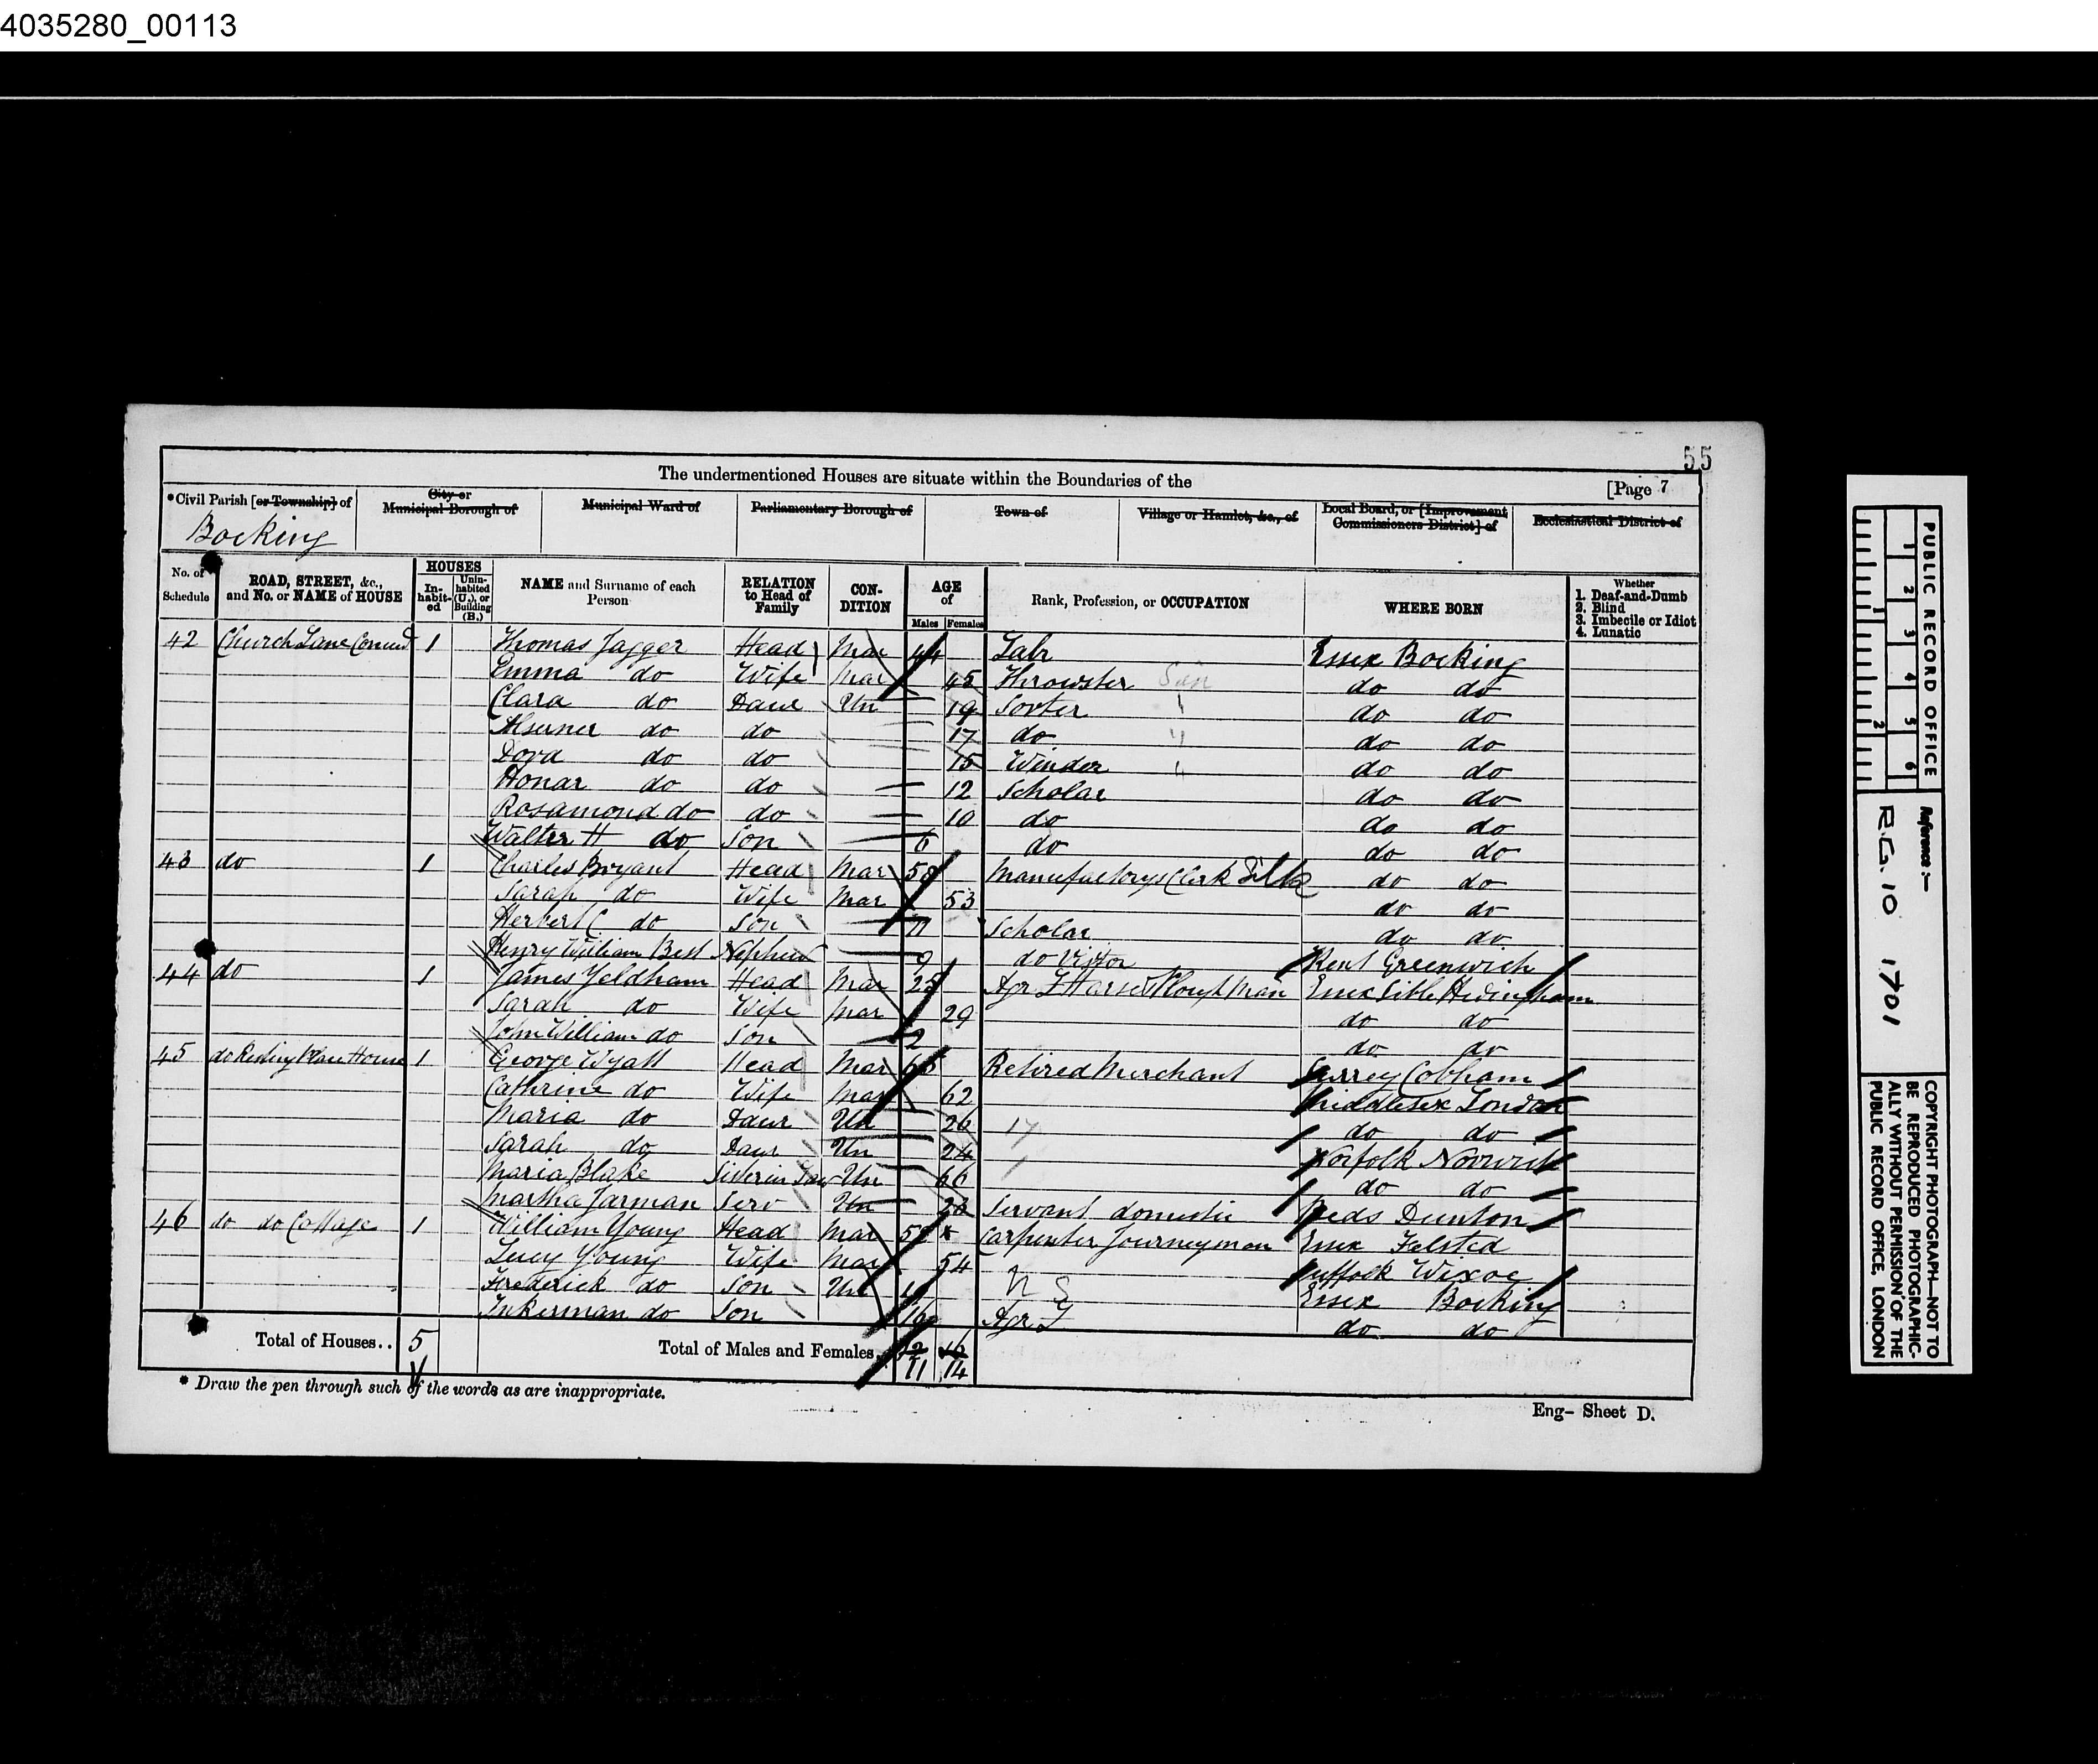 4035280_00113
55
The undermentioned Houses are situate within the Boundaries of the
[Page 7
*Civil Parish [or Township] of
City or Municipal Borough of
Municipal Ward of
Parliamentary Borough of
Town of
Village or Hamlet, &c., of
Local Board, or [Improvement Commissioners District] of
Ecclesiastical District of
Bocking
No. of Schedule
ROAD, STREET, &c., and No. or NAME of HOUSE
HOUSES
In-habit-ed
Unin-habited (U.), or Building (B.)
NAME and Surname of each Person
RELATION to Head of Family
CON-DITION
AGE of
Males Females
Rank, Profession, or OCCUPATION
WHERE BORN
Whether
1. Deaf-and-Dumb
2. Blind
3. Imbecile or Idiot
4. Lunatic
42 Church Lane 1 Thomas Jagger Head Mar 44 Labr Essex Bocking
Emma do Wife Mar 45 Throwster do do
Clara do Daur Un 19 Sorter do do
do do 17 do do do
Dora do do 15 Winder do do
Honar do do 12 Scholar do do
Rosamond do do 10 do do do
Walter H do Son 6 do do do
43 do 1 Charles Bryant Head Mar 58 Manufactorys Clerk Silk do do
Sarah do Wife Mar 53 do do
Herbert C do Son 11 Scholar do do
Henry William Best Nephew 9 do Visitor Kent Greenwich
44 do 1 James Yeldham Head Mar 25 Agr L Horse Plough Man Essex Sible Hedingham
Sarah do Wife Mar 29 do do
John William do Son 2 do do
45 do House 1 George Wyatt Head Mar 66 Retired Merchant Surrey Cobham
Cathrine do Wife Mar 62 Middlesex London
Maria do Daur Un 26 do do
Sarah do Daur Un 24 Norfolk Norwich
Maria Blake Un 66 do do
Martha Jarman Serv Un 28 Servant domestic Beds Dunton
46 do do Cottage 1 William Young Head Mar Carpenter Journeyman Essex Felsted
Lucy Young Wife Mar 54 Suffolk Wixoe
Frederick do Son Un Essex Bocking
Inkerman do Son 16 Agr L do do
Total of Houses.. 5
Total of Males and Females..
12 16
11 14
* Draw the pen through such of the words as are inappropriate.
Eng- Sheet D.
PUBLIC RECORD OFFICE
1 2 3 4 5 6
1 2
Reference:-
R.G. 10 1701
COPYRIGHT PHOTOGRAPH—NOT TO BE REPRODUCED PHOTOGRAPHIC-ALLY WITHOUT PERMISSION OF THE PUBLIC RECORD OFFICE, LONDON